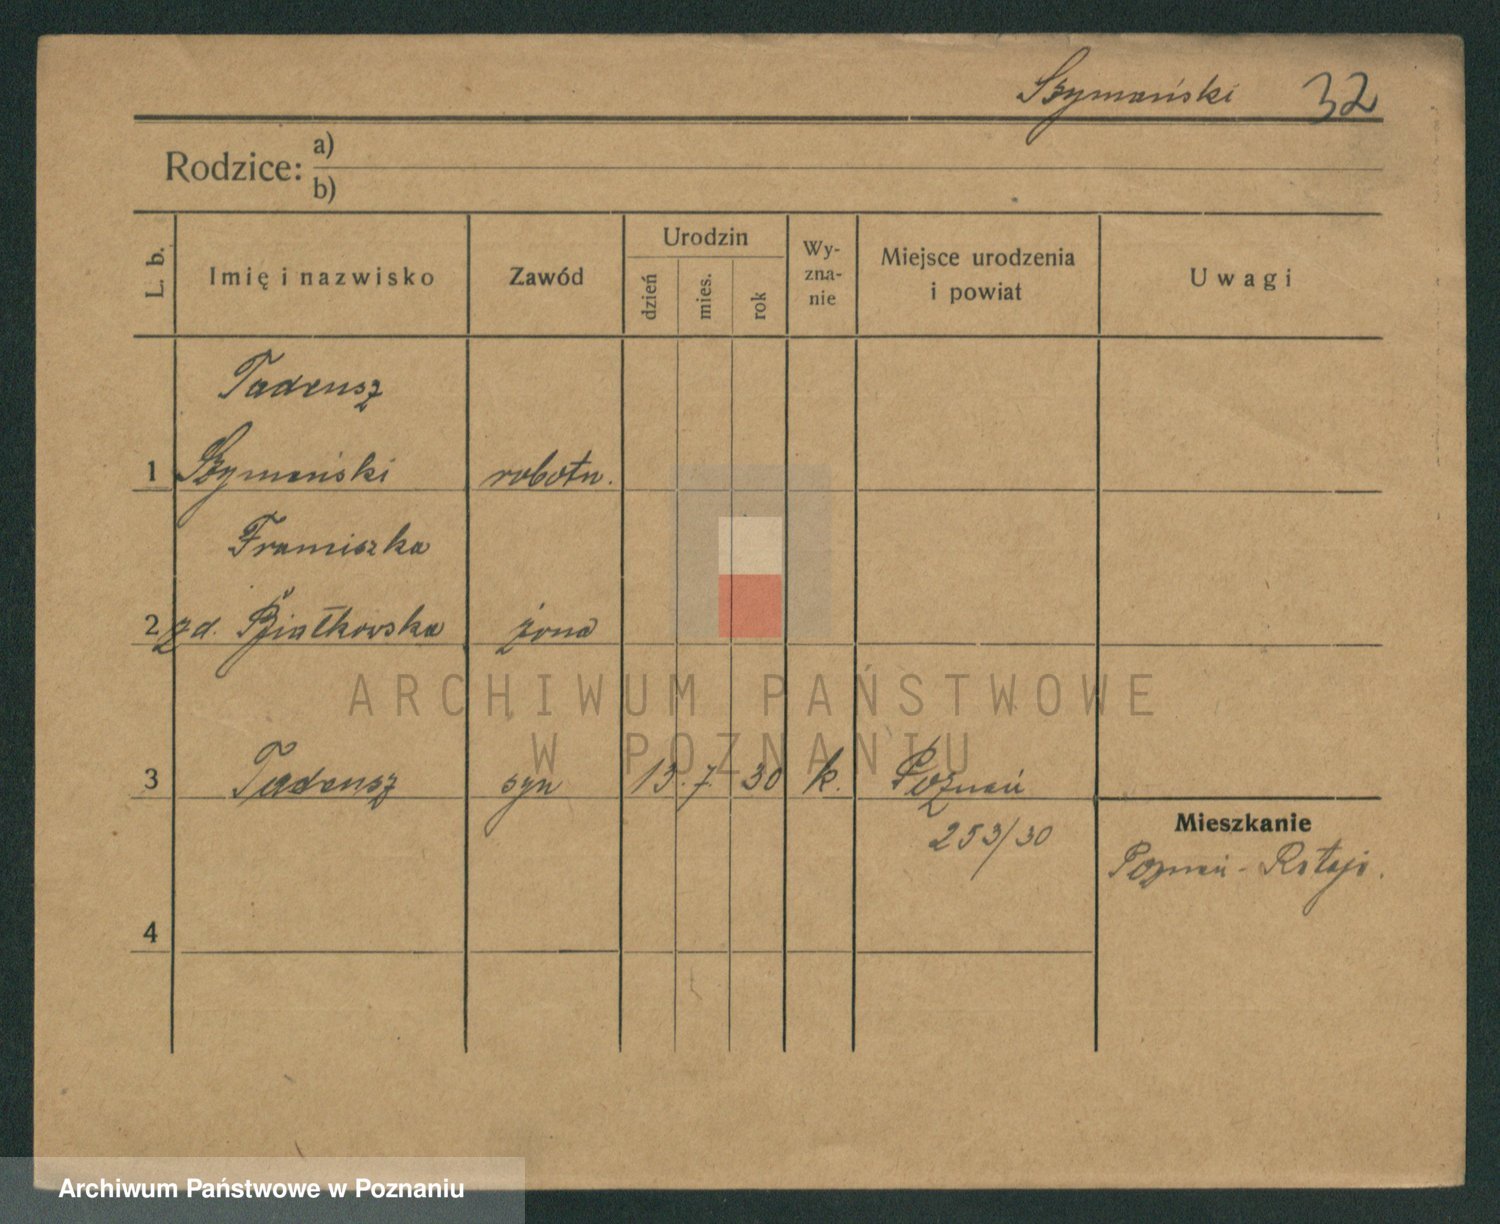 Szymański 32
Rodzice: a)
b)
L. b. Imię i nazwisko Zawód Urodzin dzień mies. rok Wy-zna-nie Miejsce urodzenia i powiat Uwagi
Tadeusz
1 Szymański robotn.
Franciszka
2 zd. Białkowska żona
3 Tadeusz syn 13. 7. 30 k. Poznań
253/30
Mieszkanie
Poznań - Rataje.
4
ARCHIWUM PAŃSTWOWE
W POZNANIU
Archiwum Państwowe w Poznaniu